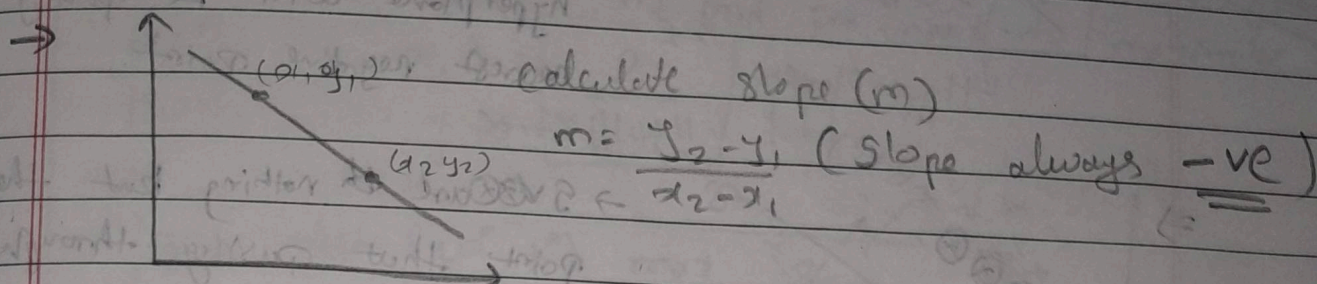 → (x1, y1) calculate slope (m)
m = y2-y1 / x2-x1 (slope always -ve)
(x2 y2)